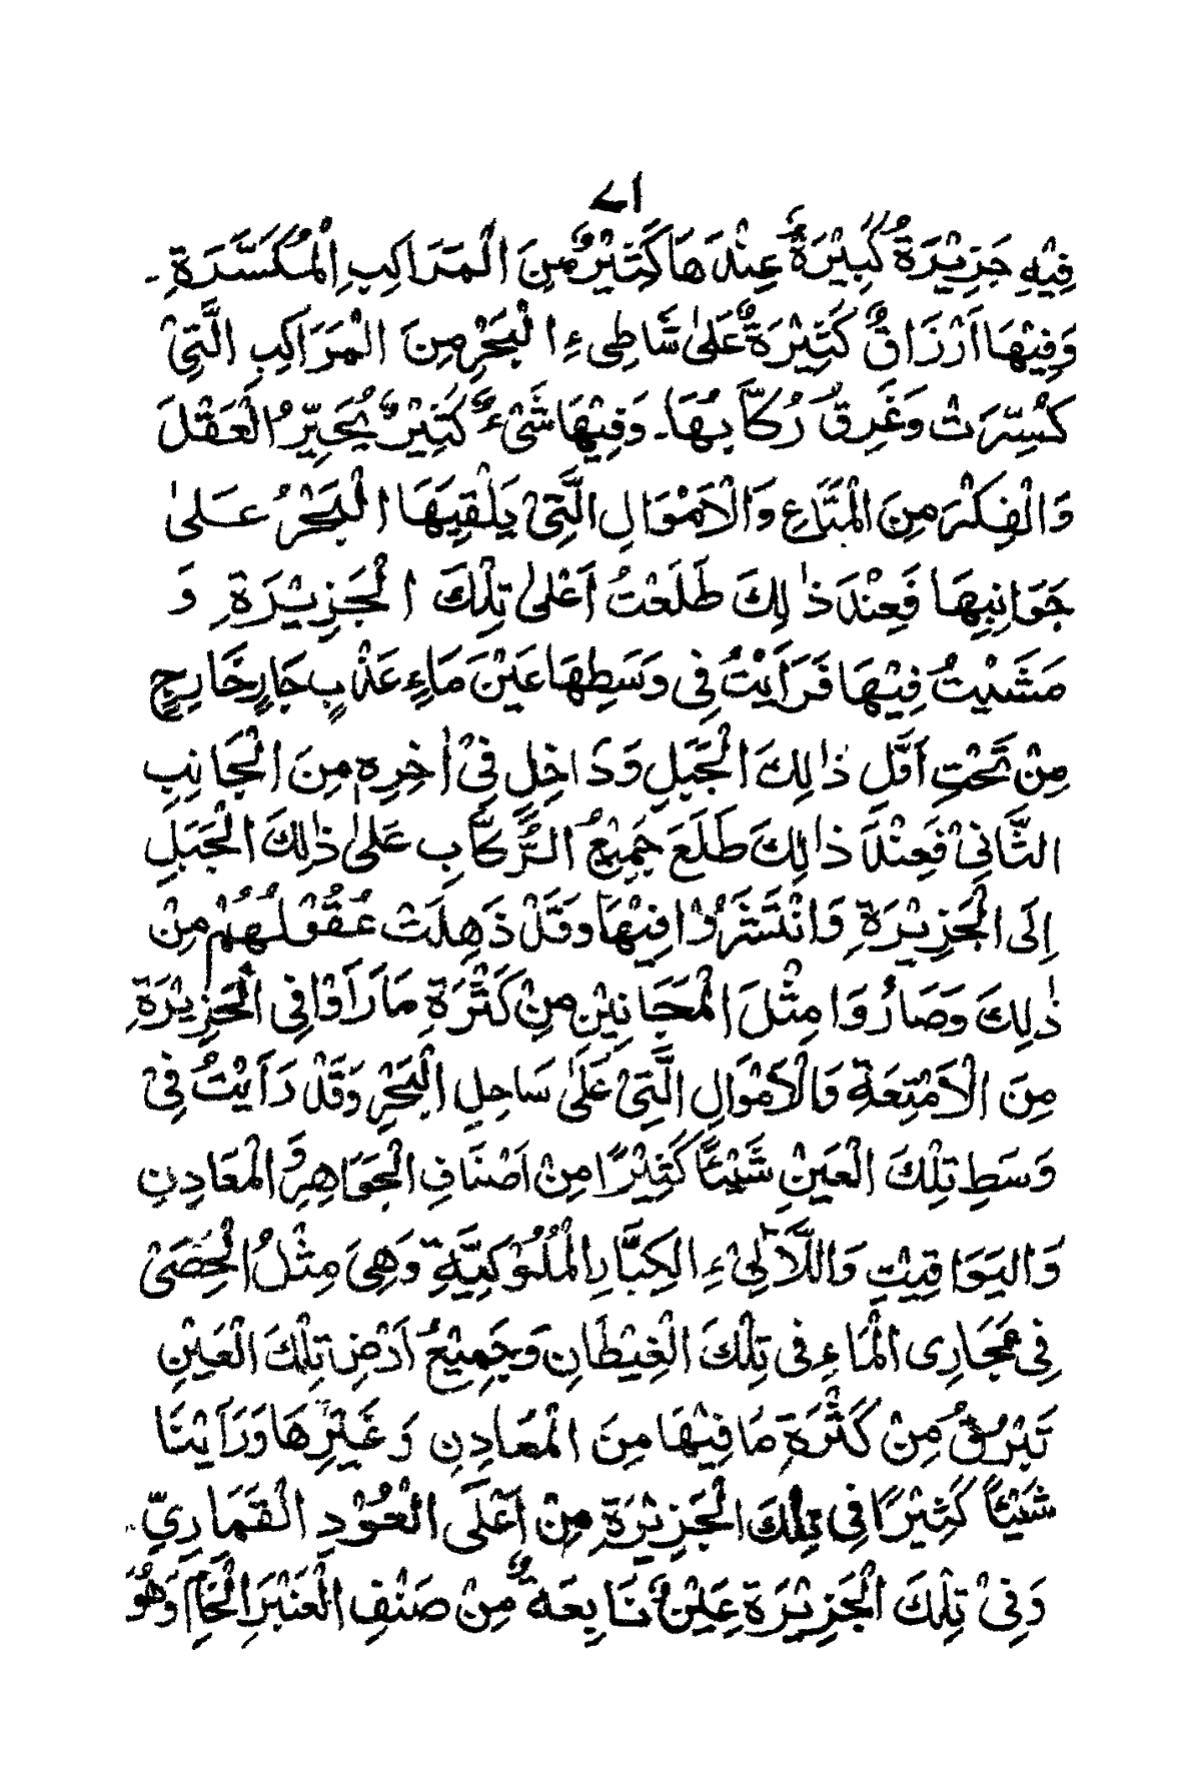 ٧١
فِيْهِ جَزِيْرَةٌ كَبِيْرَةٌ عِنْدَهَا كَثِيْرٌ مِنَ الْمَرَاكِبِ الْمُكَسَّرَةِ۔
وَفِيْهَا اَرْزَاقٌ كَثِيْرَةٌ عَلىٰ شَاطِیءِ الْبَحْرِ مِنَ الْمَرَاكِبِ الَّتِیْ
كُسِّرَتْ وَغَرِقَ رُكَّابُهَا۔ وَفِيْهَا شَیْءٌ كَثِيْرٌ يُحَيِّرُ الْعَقْلَ
وَالْفِكْرَ مِنَ الْمَتَاعِ وَالْاَمْوَالِ الَّتِیْ يَلْقِيَهَا الْبَحْرُ عَلىٰ
جَوَانِبِهَا فَعِنْدَ ذٰلِكَ طَلَعْتُ اَعْلىٰ تِلْكَ الْجَزِيْرَةِ وَ
مَشَيْتُ فِيْهَا فَرَاَيْتُ فِی وَسَطِهَا عَيْنَ مَاءٍ عَذْبٍ جَارٍ خَارِجٍ
مِنْ تَحْتِ اَوَّلِ ذٰلِكَ الْجَبَلِ وَدَاخِلٍ فِیْ اٰخِرِهٖ مِنَ الْجَانِبِ
الثَّانِیْ فَعِنْدَ ذٰلِكَ طَلَعَ جَمِيْعُ الرُّكَّابِ عَلىٰ ذٰلِكَ الْجَبَلِ
اِلَی الْجَزِيْرَةِ وَانْتَشَرُوْا فِيْهَا وَقَدْ ذَهِلَتْ عُقُوْلُهُمْ مِنْ
ذٰلِكَ وَصَارُوَا مِثْلَ الْمَجَانِيْنِ مِنْ كَثْرَةِ مَا رَاَوْا فِی الْجَزِيْرَةِ
مِنَ الْاَمْتِعَةِ وَالْاَمْوَالِ الَّتِیْ عَلىٰ سَاحِلِ الْبَحْرِ وَقَدْ رَاَيْتُ فِیْ
وَسَطِ تِلْكَ الْعَيْنِ شَيْئًا كَثِيْرًا مِنْ اَصْنَافِ الْجَوَاهِرِ وَالْمَعَادِنِ
وَاليَوَاقِيْتِ وَاللَّاٰلِیْءِ الكِبَّارِ الْمُلُوْكِيَّةِ وَهِیَ مِثْلُ الْحِصَیْ
فِی مَجَارِی الْمَاءِ فِی تِلْكَ الْغِيْطَانِ وَجَمِيْعُ اَرْضِ تِلْكَ الْعَيْنِ
تَبْرُقُ مِنْ كَثْرَةِ مَا فِيْهَا مِنَ الْمَعَادِنِ وَغَيْرِهَا وَرَاَيْنَا
شَيْئًا كَثِيْرًا فِی تِلْكَ الْجَزِيْرَةِ مِنْ اَعْلَی الْعُوْدِ الْقَمَارِیِّ۔
وَفِیْ تِلْكَ الْجَزِيْرَةِ عَيْنٌ نَابِعَةٌ مِنْ صَنْفِ الْعَنْبَرِ الْخَامِ وَهُوَ